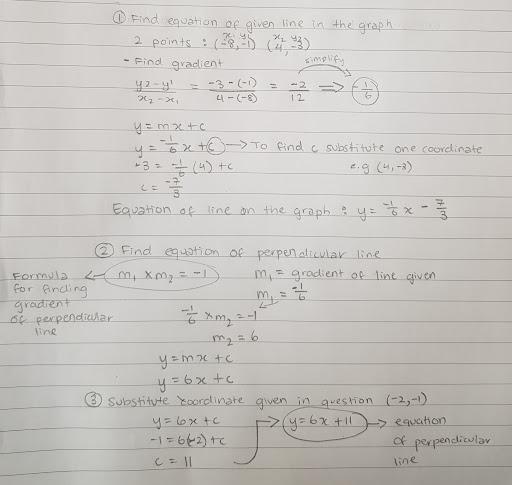 ① Find equation of given line in the graph
x₁ y₁ x₂ y₂
2 points : (-8,-1) (4,-3)
- Find gradient
simplify
y2-y1 / x2-x1 = -3-(-1) / 4-(-8) = -2/12 ⇒ -1/6
y=mx+c
y = -1/6 x + c → To find c substitute one coordinate
-3 = -1/6 (4) + c e.g (4,-3)
c = -7/3
Equation of line on the graph : y = -1/6 x - 7/3
② Find equation of perpendicular line
Formula for finding gradient of perpendicular line ← m₁ × m₂ = -1
m₁ = gradient of line given
m₁ = -1/6
-1/6 × m₂ = -1
m₂ = 6
y=mx+c
y = 6x + c
③ Substitute coordinate given in question (-2,-1)
y=6x+c
-1=6(-2)+c
c = 11
y=6x+11 → equation of perpendicular line